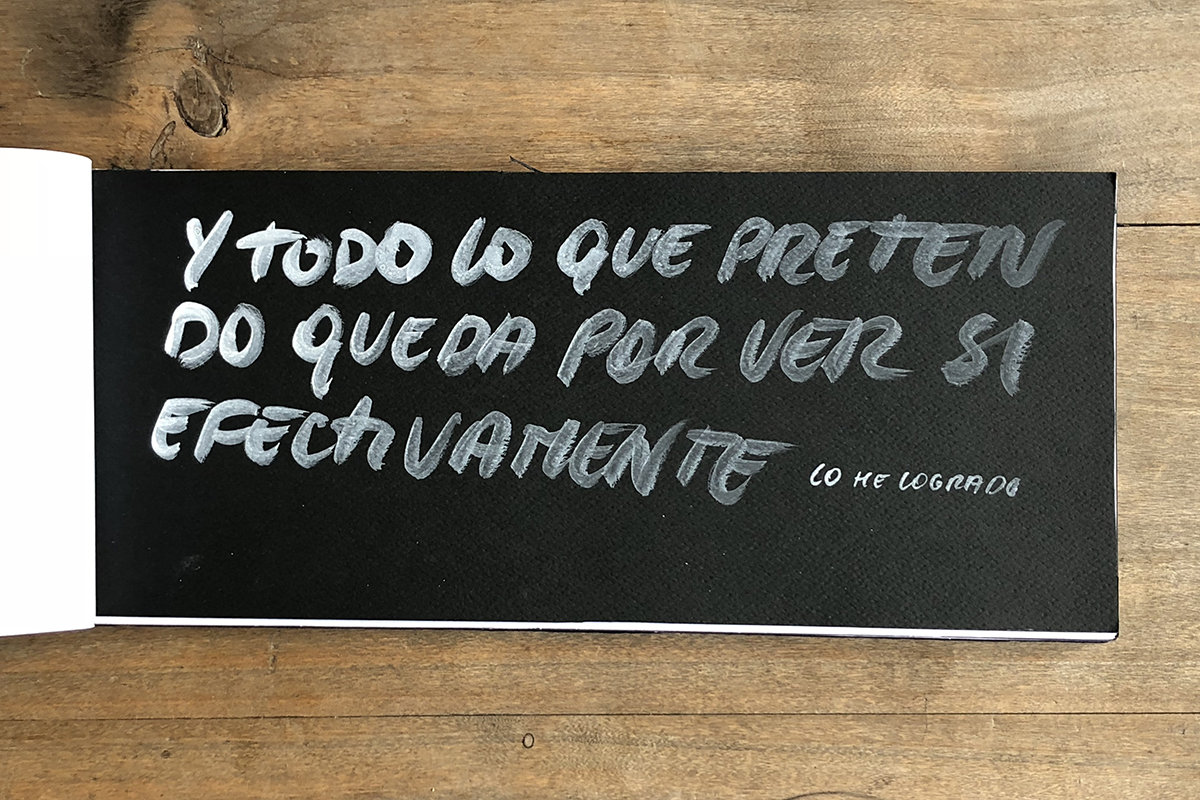 Y TODO LO QUE PRETEN
DO QUEDA POR VER SI
EFECTIVAMENTE LO HE LOGRADO